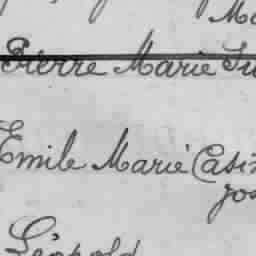 Ma
Pierre Marie
Emile Marie Casi
Jos
Léopold